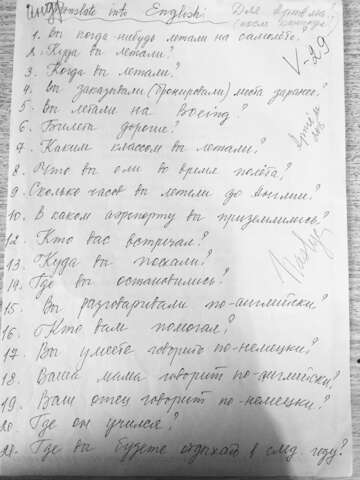 Translate into English. Для
1. Вы когда-нибудь летали на самолёте?
2. Куда вы летали?
3. Когда вы летали?
V-29
4. Вы заказывали (бронировали) места заранее?
5. Вы летали на Boeing?
6. Билеты дорогие?
7. Каким классом вы летали?
8. Что вы ели во время полёта?
9. Сколько часов вы летели до Англии?
10. В каком аэропорту вы приземлились?
12. Кто вас встречал?
13. Куда вы поехали?
14. Где вы остановились?
15. Вы разговаривали по-английски?
16. Кто вам помогал?
17. Вы умеете говорить по-немецки?
18. Ваша мама говорит по-английски?
19. Ваш отец говорит по-немецки?
20. Где он учился?
21. Где вы будете отдыхать в след. году?